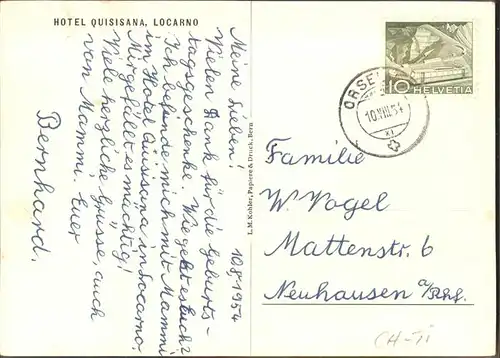 HOTEL QUISISANA, LOCARNO
10.8.1954
Meine Lieben!
Vielen Dank für die Geburts-
tagsgeschenke. Wie geht es Euch?
Ich befinde mich mit Mammi
im Hotel Quisisana in Locarno.
Mir gefällt es mächtig!
Viele herzliche Grüsse, auch
von Mammi, Euer
Bernhard.
L. M. Kohler, Papiere & Druck, Bern
10 HELVETIA
10.VIII.54
XI
Familie
W. Vogel
Mattenstr. 6
Neuhausen a/Rhf.
CH-TI